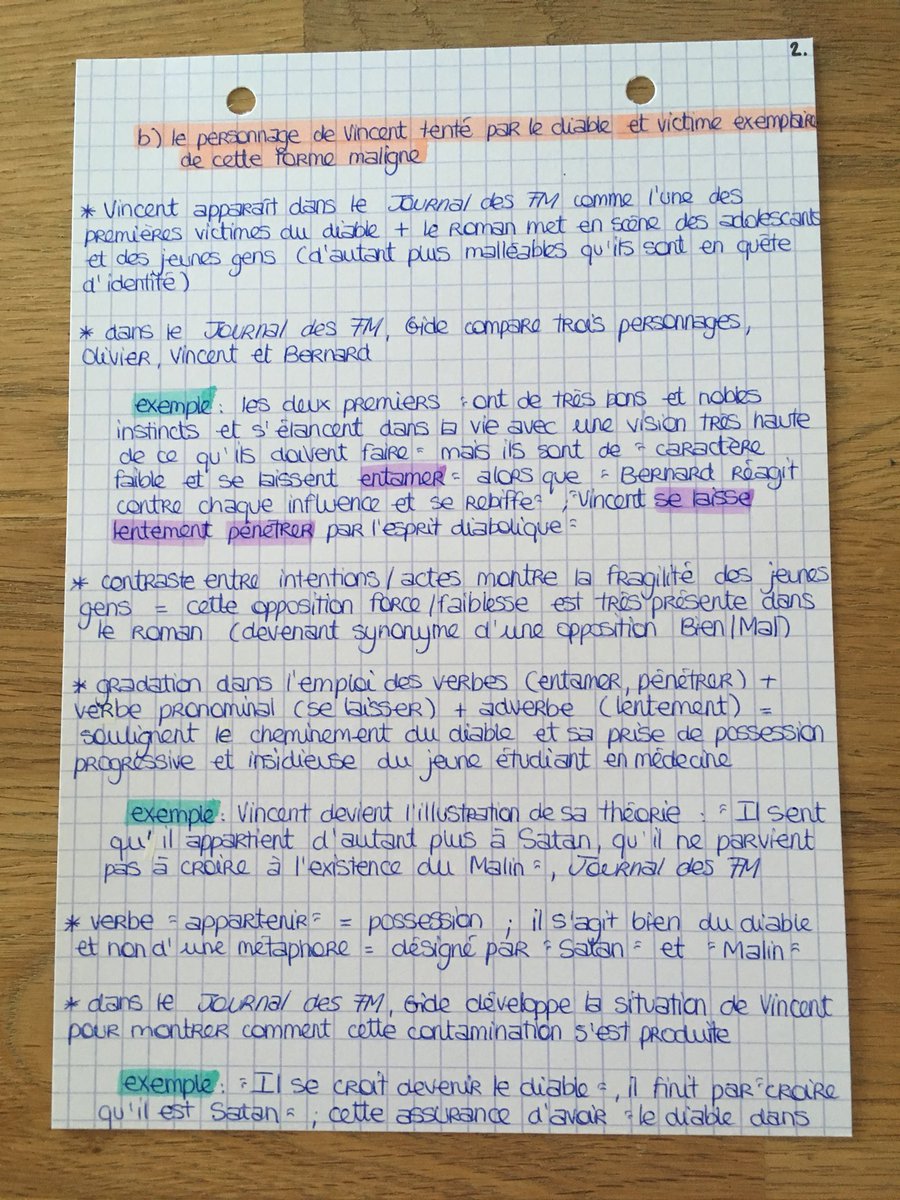 2.
b) le personnage de Vincent tenté par le diable et victime exemplaire
de cette forme maligne
* Vincent apparaît dans le Journal des FM comme l'une des
premières victimes du diable + le roman met en scène des adolescents
et des jeunes gens (d'autant plus malléables qu'ils sont en quête
d'identité)
* dans le Journal des FM, Gide compare trois personnages,
Olivier, Vincent et Bernard
exemple : les deux premiers "ont de très bons et nobles
instincts et s'élancent dans la vie avec une vision très haute
de ce qu'ils doivent faire" mais ils sont de "caractère
faible et se laissent entamer" alors que "Bernard réagit
contre chaque influence et se rebiffe", "Vincent se laisse
lentement pénétrer par l'esprit diabolique"
* contraste entre intentions/actes montre la fragilité des jeunes
gens = cette opposition force/faiblesse est très présente dans
le roman (devenant synonyme d'une opposition Bien/Mal)
* gradation dans l'emploi des verbes (entamer, pénétrer) +
verbe pronominal (se laisser) + adverbe (lentement) =
soulignent le cheminement du diable et sa prise de possession
progressive et insidieuse du jeune étudiant en médecine
exemple : Vincent devient l'illustration de sa théorie : "Il sent
qu'il appartient d'autant plus à Satan, qu'il ne parvient
pas à croire à l'existence du Malin", Journal des FM
* verbe "appartenir" = possession ; il s'agit bien du diable
et non d'une métaphore = désigné par "Satan" et "Malin"
* dans le Journal des FM, Gide développe la situation de Vincent
pour montrer comment cette contamination s'est produite
exemple : "Il se croit devenir le diable", il finit par "croire
qu'il est Satan" ; cette assurance d'avoir "le diable dans